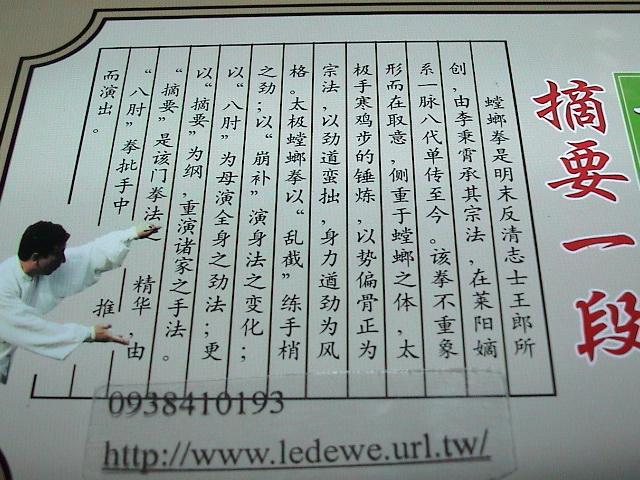 摘要一段
螳螂拳是明末反清志士王郎所
创，由李秉霄承其宗法，在莱阳嫡
系一脉八代单传至今。该拳不重象
形而在取意，侧重于螳螂之体，太
极手寒鸡步的锤炼，以势偏骨正为
宗法，以劲道蛮拙，身力道劲为风
格。太极螳螂拳以“乱截”练手梢
之劲；以“崩补”演身法之变化；
以“八肘”为母演全身之劲法；更
以“摘要”为纲，重演诸家之手法。
“摘要”是该门拳法之精华，由
“八肘”拳批手中推
而演出。
0938410193
http://www.ledewe.url.tw/